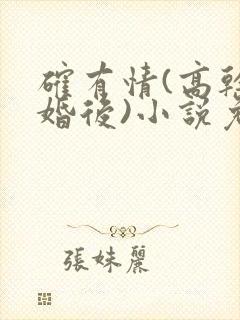 確有情(高幹
婚後)小說
張妹麗